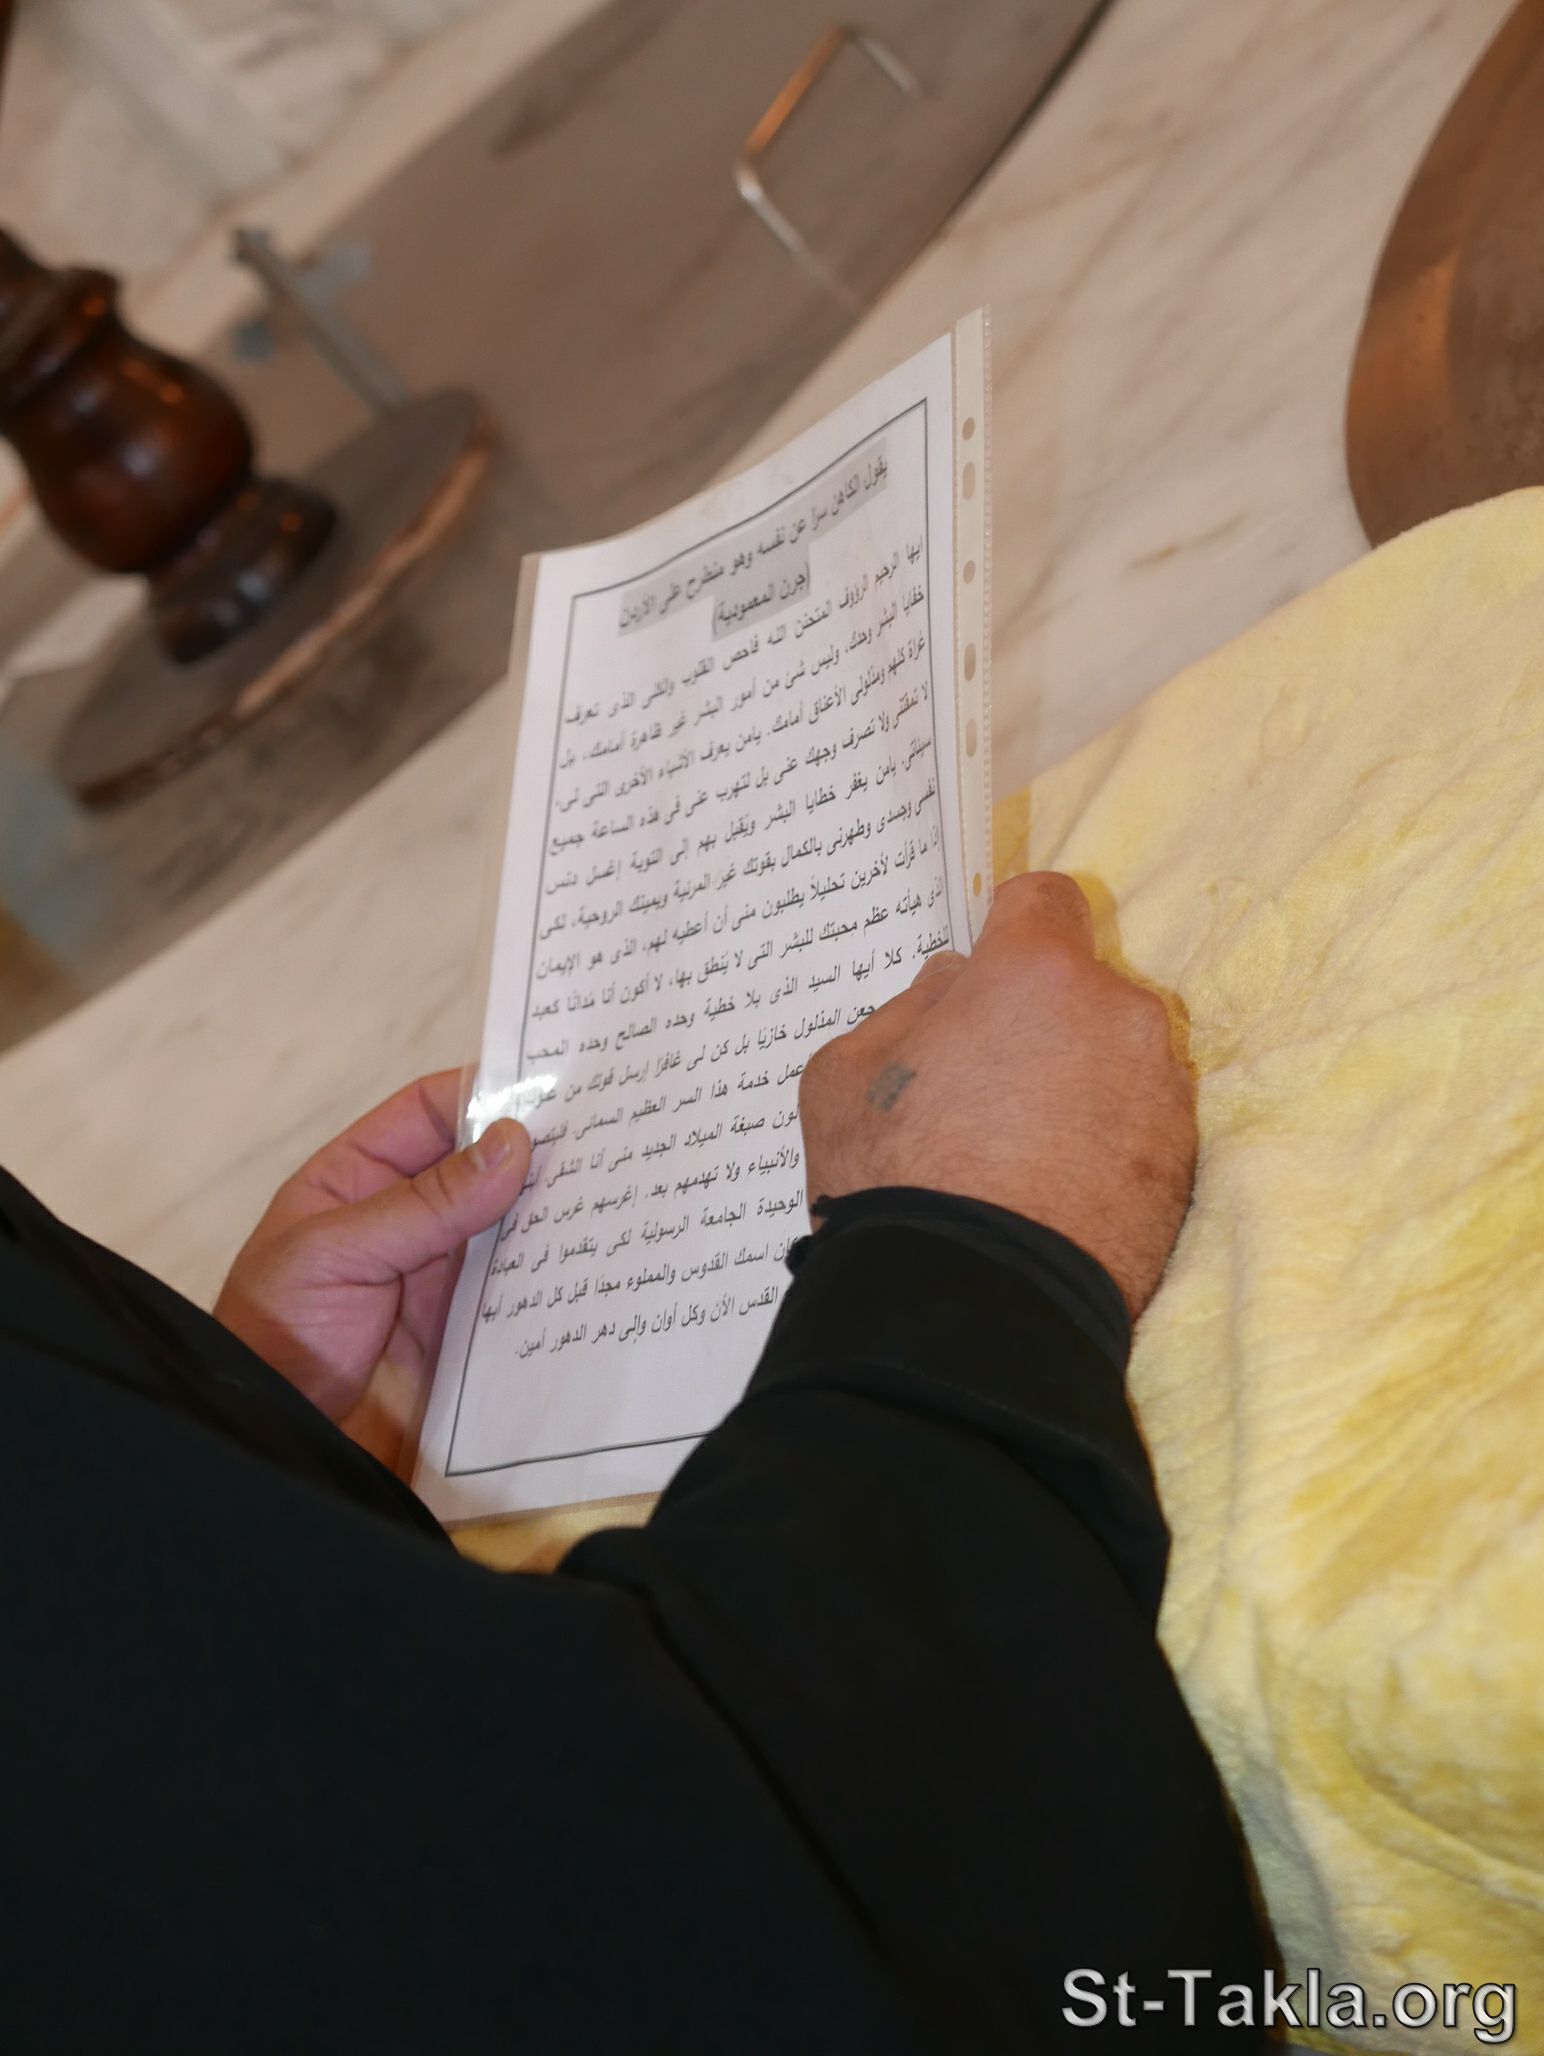 يقول الكاهن سرا عن نفسه وهو منطرح على الأردن
(جرن المعمودية)
ايها الرحيم الرؤوف المتحنن الله فاحص القلوب والكلى الذى تعرف
خفايا البشر وحدك، وليس شئ من أمور البشر غير ظاهرة أمامك، بل
عراة كلهم ومذلولى الأعناق أمامك. يامن يعرف الأشياء الأخرى التى لى.
لا تمقتنى ولا تصرف وجهك عنى بل لتهرب عنى فى هذه الساعة جميع
سيئاتى. يامن يغفر خطايا البشر ويُقبل بهم إلى التوبة إغسل دنس
نفسى وجسدى وطهرنى بالكمال بقوتك غير المرئية ويمينك الروحية، لكى
إذا ما قرأت لأخرين تحليلاً يطلبون منى أن أعطيه لهم، الذى هو الإيمان
الذى هيأته عظم محبتك للبشر التى لا يُنطق بها، لا أكون أنا مُدانًا كعبد
للخطية. كلا أيها السيد الذى بلا خطية وحده الصالح وحده المحب
المذلول خازيًا بل كن لى غافرًا إرسل قوتك من
خدمة هذا السر العظيم السمائى.
صبغة الميلاد الجديد منى أنا الشقى.
والأنبياء ولا تهدمهم بعد. إغرسهم غرس الحق فى
الوحيدة الجامعة الرسولية لكى يتقدموا فى العبادة
اسمك القدوس والمملوء مجدًا قبل كل الدهور أيها
القدس الأن وكل أوان وإلى دهر الدهور أمين.
St-Takla.org